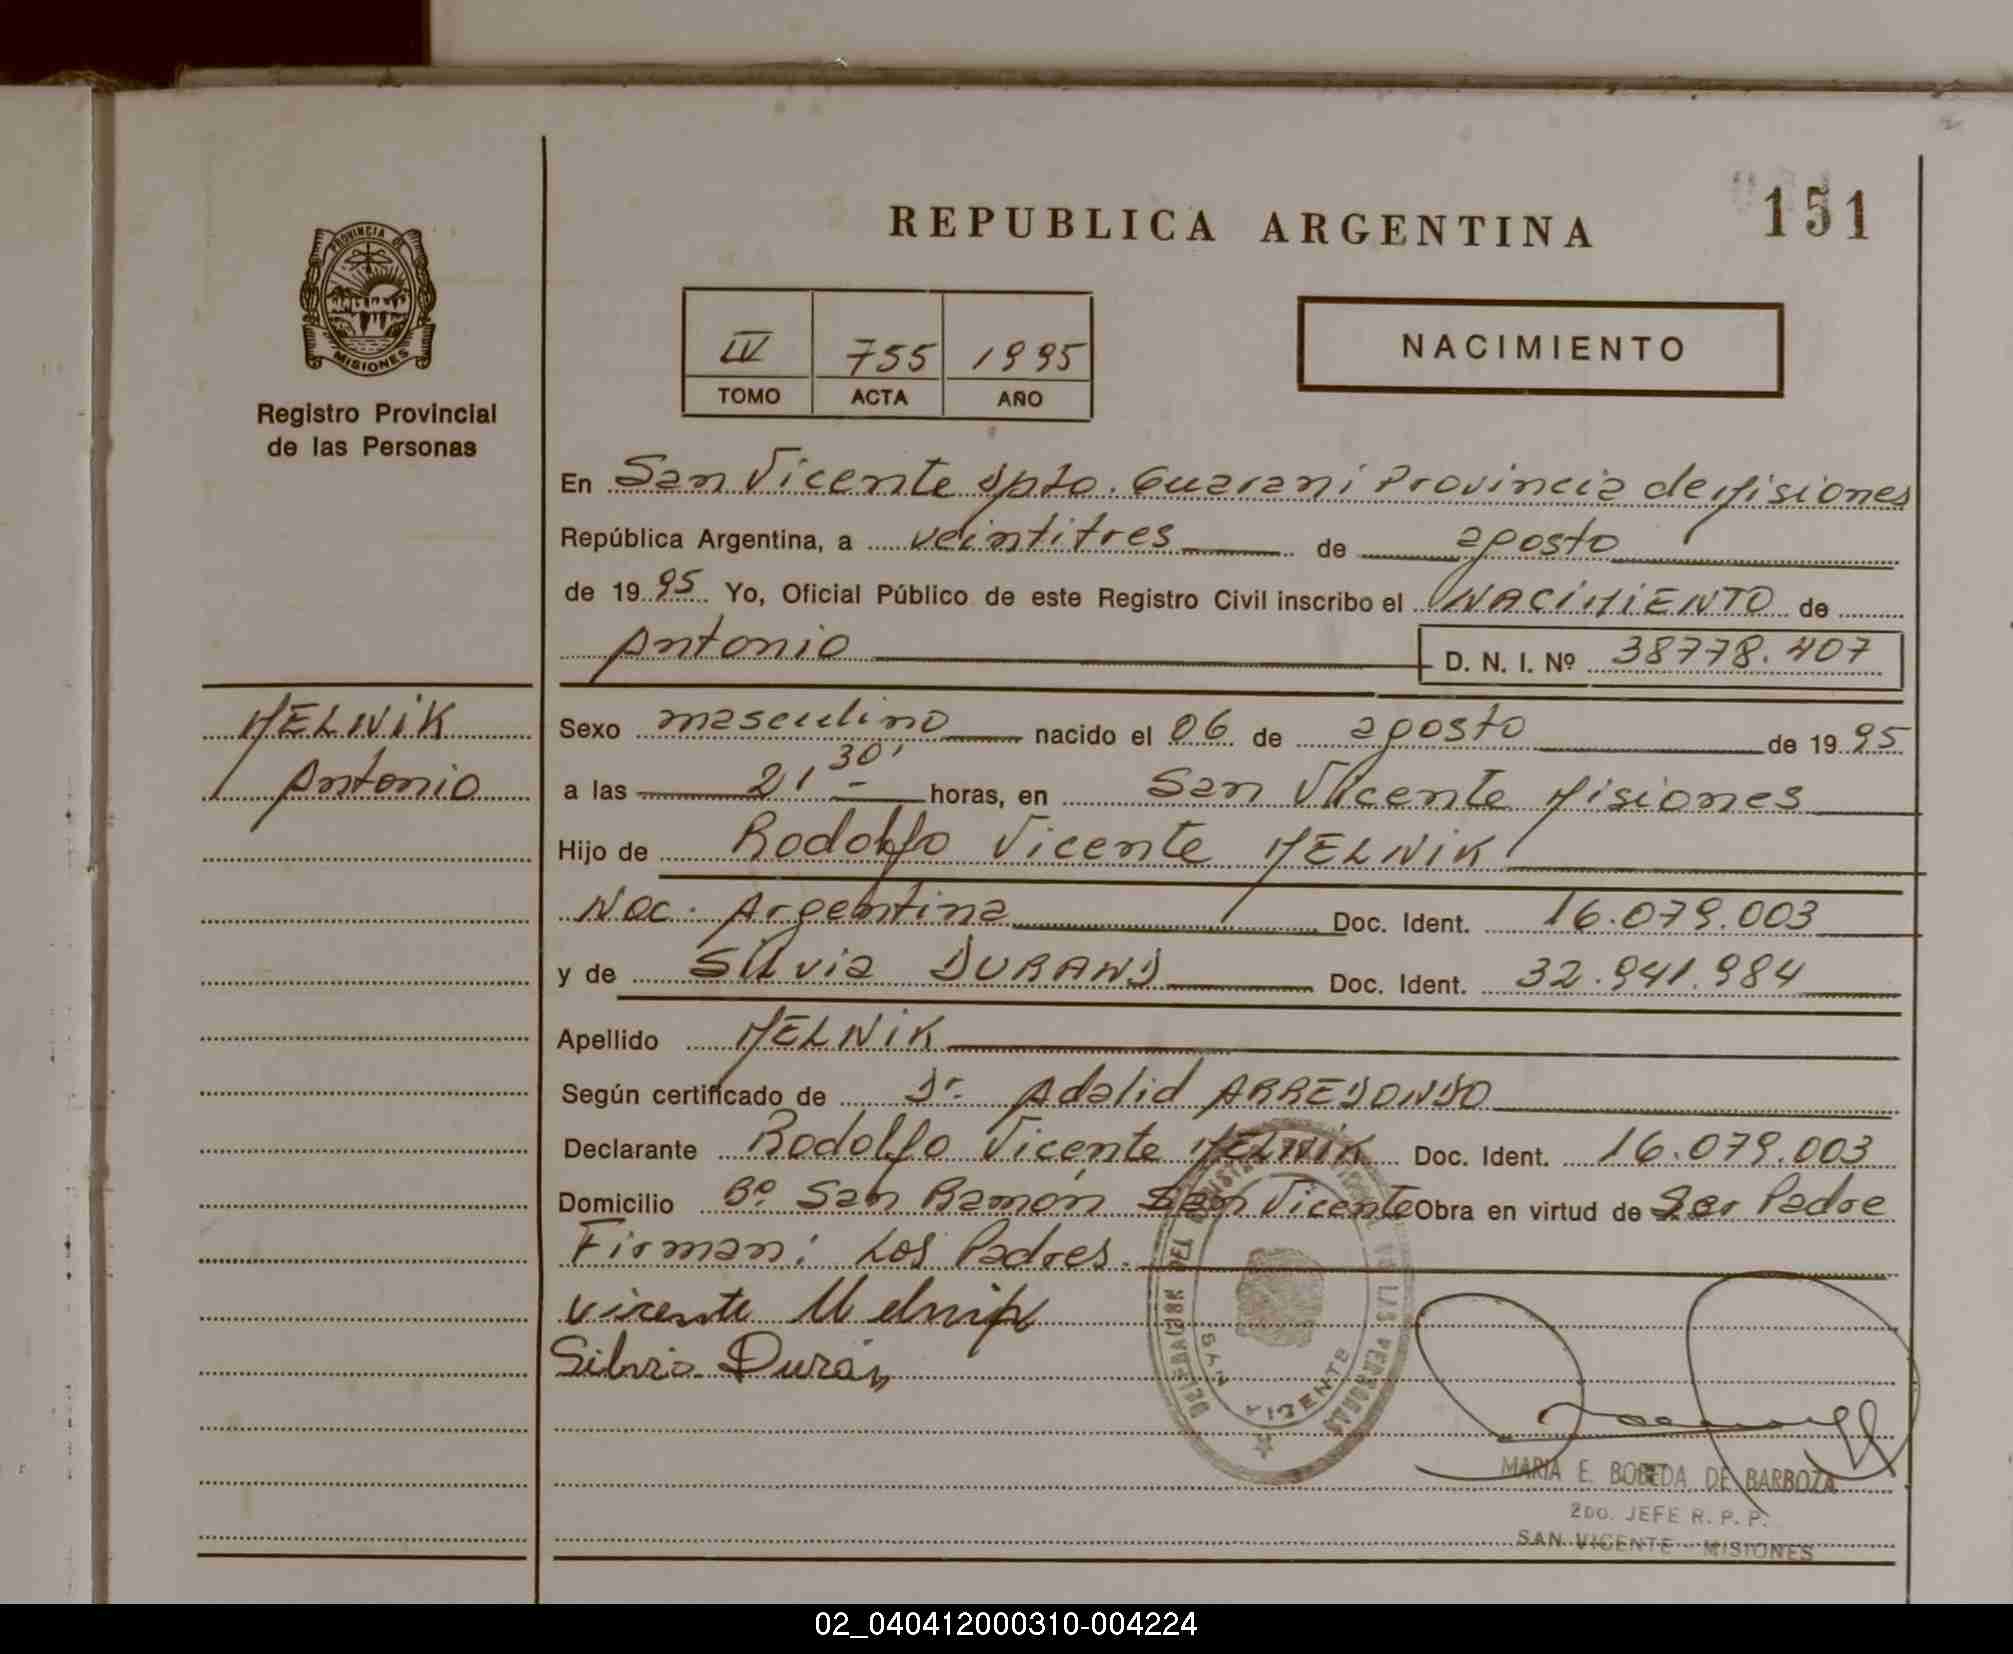 REPUBLICA ARGENTINA
151
PROVINCIA DE
MISIONES
Registro Provincial
de las Personas
IV 755 1995
TOMO ACTA AÑO
NACIMIENTO
En San Vicente Dpto. Guaraní Provincia de Misiones
República Argentina, a veintitres de agosto
de 1995 Yo, Oficial Público de este Registro Civil inscribo el NACIMIENTO de
Antonio D. N. I. Nº 38778.407
MELNIK
Antonio
Sexo masculino nacido el 06 de agosto de 1995
a las 21 30' horas, en San Vicente Misiones
Hijo de Rodolfo Vicente MELNIK
Nac. Argentina Doc. Ident. 16.079.003
y de Silvia DURAND Doc. Ident. 32.941.984
Apellido MELNIK
Según certificado de Dr. Adalid ARREDONDO
Declarante Rodolfo Vicente MELNIK Doc. Ident. 16.079.003
Domicilio Bº San Ramón San Vicente Obra en virtud de Ser Padre
Firman: Los Padres.
Vicente Melnik
Silvia Durán
DELEGACION DEL REGISTRO PROVINCIAL DE LAS PERSONAS
SAN VICENTE
MARIA E. BOBEDA DE BARBOZA
2DO. JEFE R. P. P.
SAN VICENTE - MISIONES
02_040412000310-004224